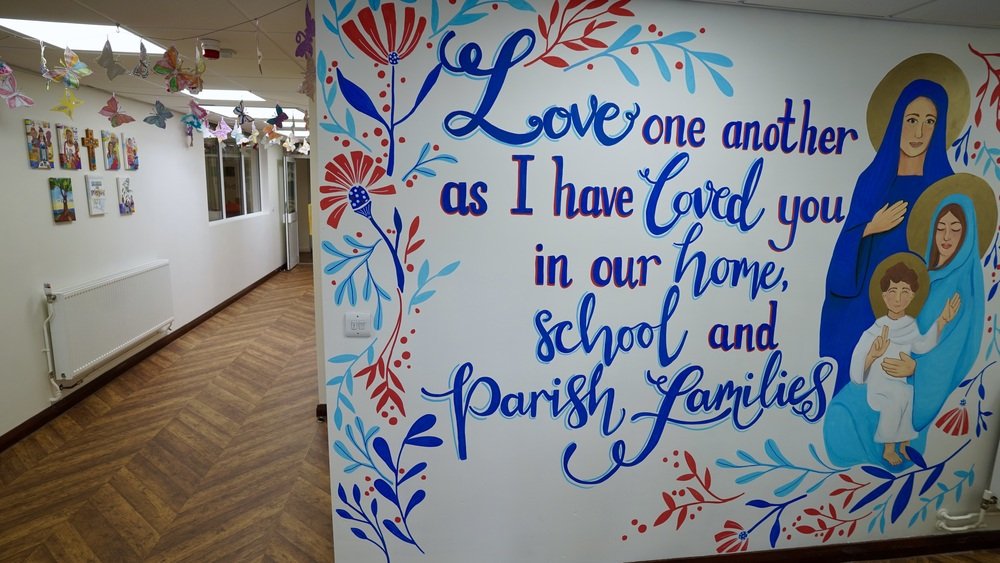 Love one another
as I have loved you
in our home,
school and
Parish Families